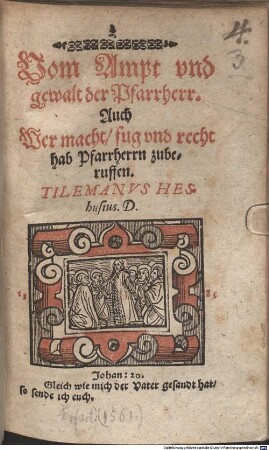 4.
3
Vom Ampt vnd
gewalt der Pfarrherr.
Auch
Wer macht/ fug vnd recht
hab Pfarrherrn zube-
ruffen.
TILEMANVS HES-
husius. D.
15 85
Johan: 20.
Gleich wie mich der Vater gesandt hat/
so sende ich euch.
(1561.)